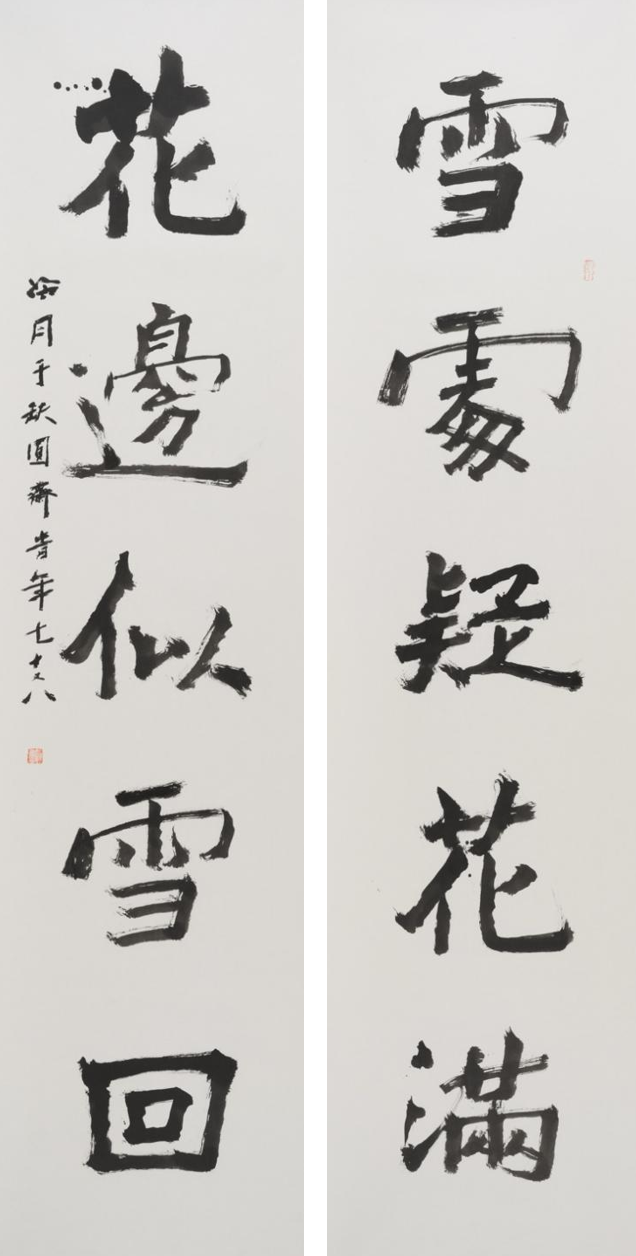 雪處疑花滿
花邊似雪回
月于秋圓齋昔年七十又八